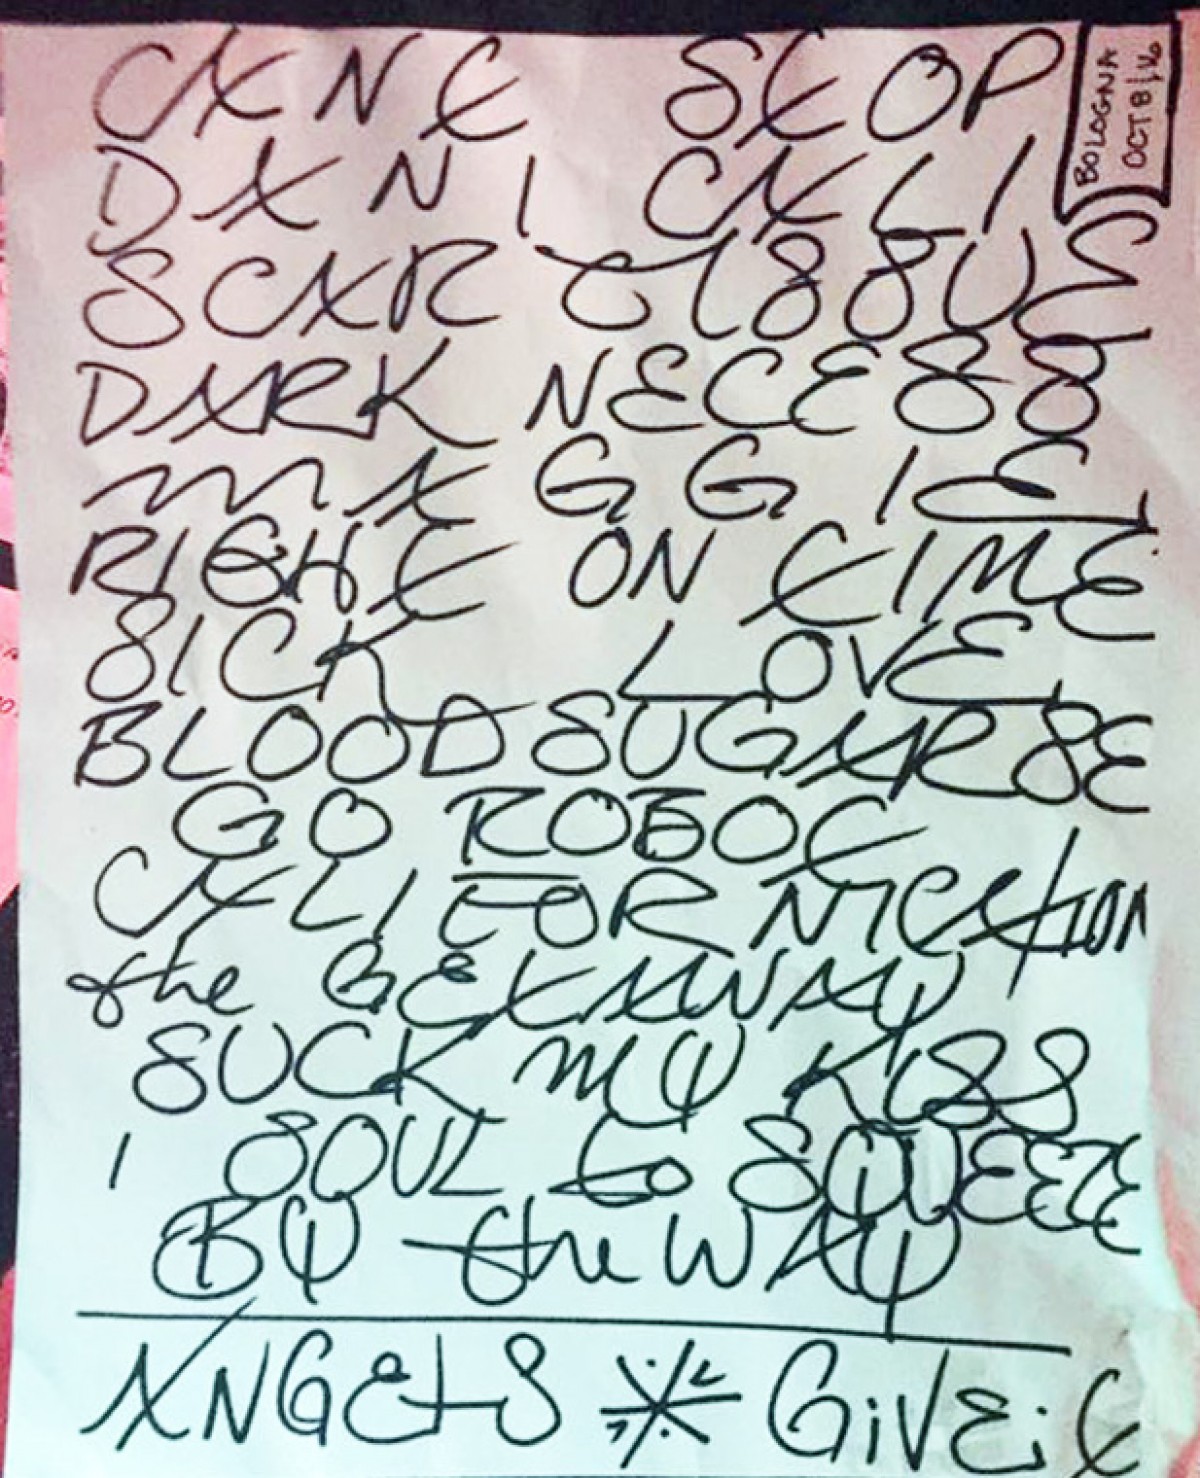 CAN'T STOP
DANI CALI
SCAR TISSUE
DARK NECESS
MAGGIE
RIGHT ON TIME
SICK LOVE
BLOOD SUGAR SE
GO ROBOT
CALIFORNICATION
the GETAWAY
SUCK MY KISS
I SOUL to SQUEEZE
BY the WAY
ANGELS * GiVE iT
BOLOGNA
OCT 8/16